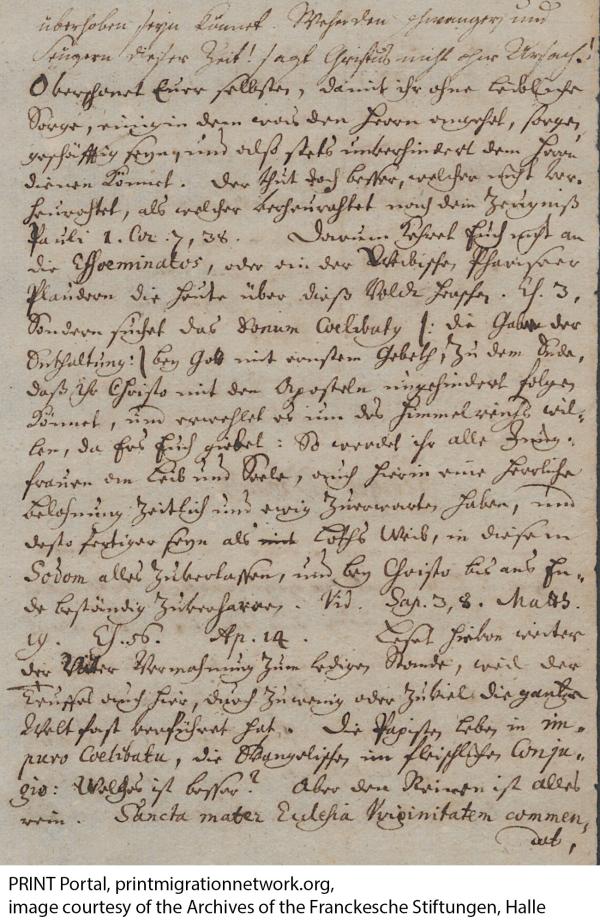 überhoben seyn könnet. Wehe den schwangern und
Säugern dieser Zeit! sagt Christus nicht ohne Ursach!
verschonet Euer selbsten, damit ihr ohne leibliche
Sorge, einig in dem was den Herrn angehet, sorgen
geschäfftig seyn, und alß stets unverhindert dem Herrn
dienen könnet. Der thut doch besser, welcher nicht ver-
heurahtet, als welcher verheurahtet nach dem Zeugniß
Pauli 1. Cor. 7, 38. Darum kehret Euch nicht an
die Effoeminatos, oder an der Weibischen Pharisaer
Plaudern die heute über dieß Volck herschen. 3,
Sondern suchet das Donum Coelibaty |: die Gaben der
Enthaltung: | bey Gott mit ernstem Gebeth, zu dem Ende,
daß ihr Christo mit den Aposteln ungehindert folgen
könnet, und erwehlet es um des Himmelreichs wil-
len, da Ers Euch giebet: So werdet ihr alle Jung-
frauen an Leib und Seele, auch hierin eine herrliche
belohnung zeitlich und ewig zuerwarten haben, und
desto fertiger seyn als Loths Weib, in diesem
Sodom alles zuverlassen, und bey Christo bis ans En-
de beständig zuverharren. Vid. Sap. 3, 8. Matth.
19. 56. Ap. 14. Leset hievon weiter
der Väter Vermahnung zum ledigen Stande, weil der
Teuffel auch hier, durch zuwenig oder zuviel die gantze
Welt fast verführet hat. Die Papisten leben in im-
puro Coelibatu, die Evangelischen im fleischlichen Conju-
gio: Welches ist besser? Aber den Reinen ist alles
rein. Sancta mater Eclesia Virginitatem commen-
dat,
PRINT Portal, printmigrationnetwork.org,
image courtesy of the Archives of the Franckesche Stiftungen, Halle